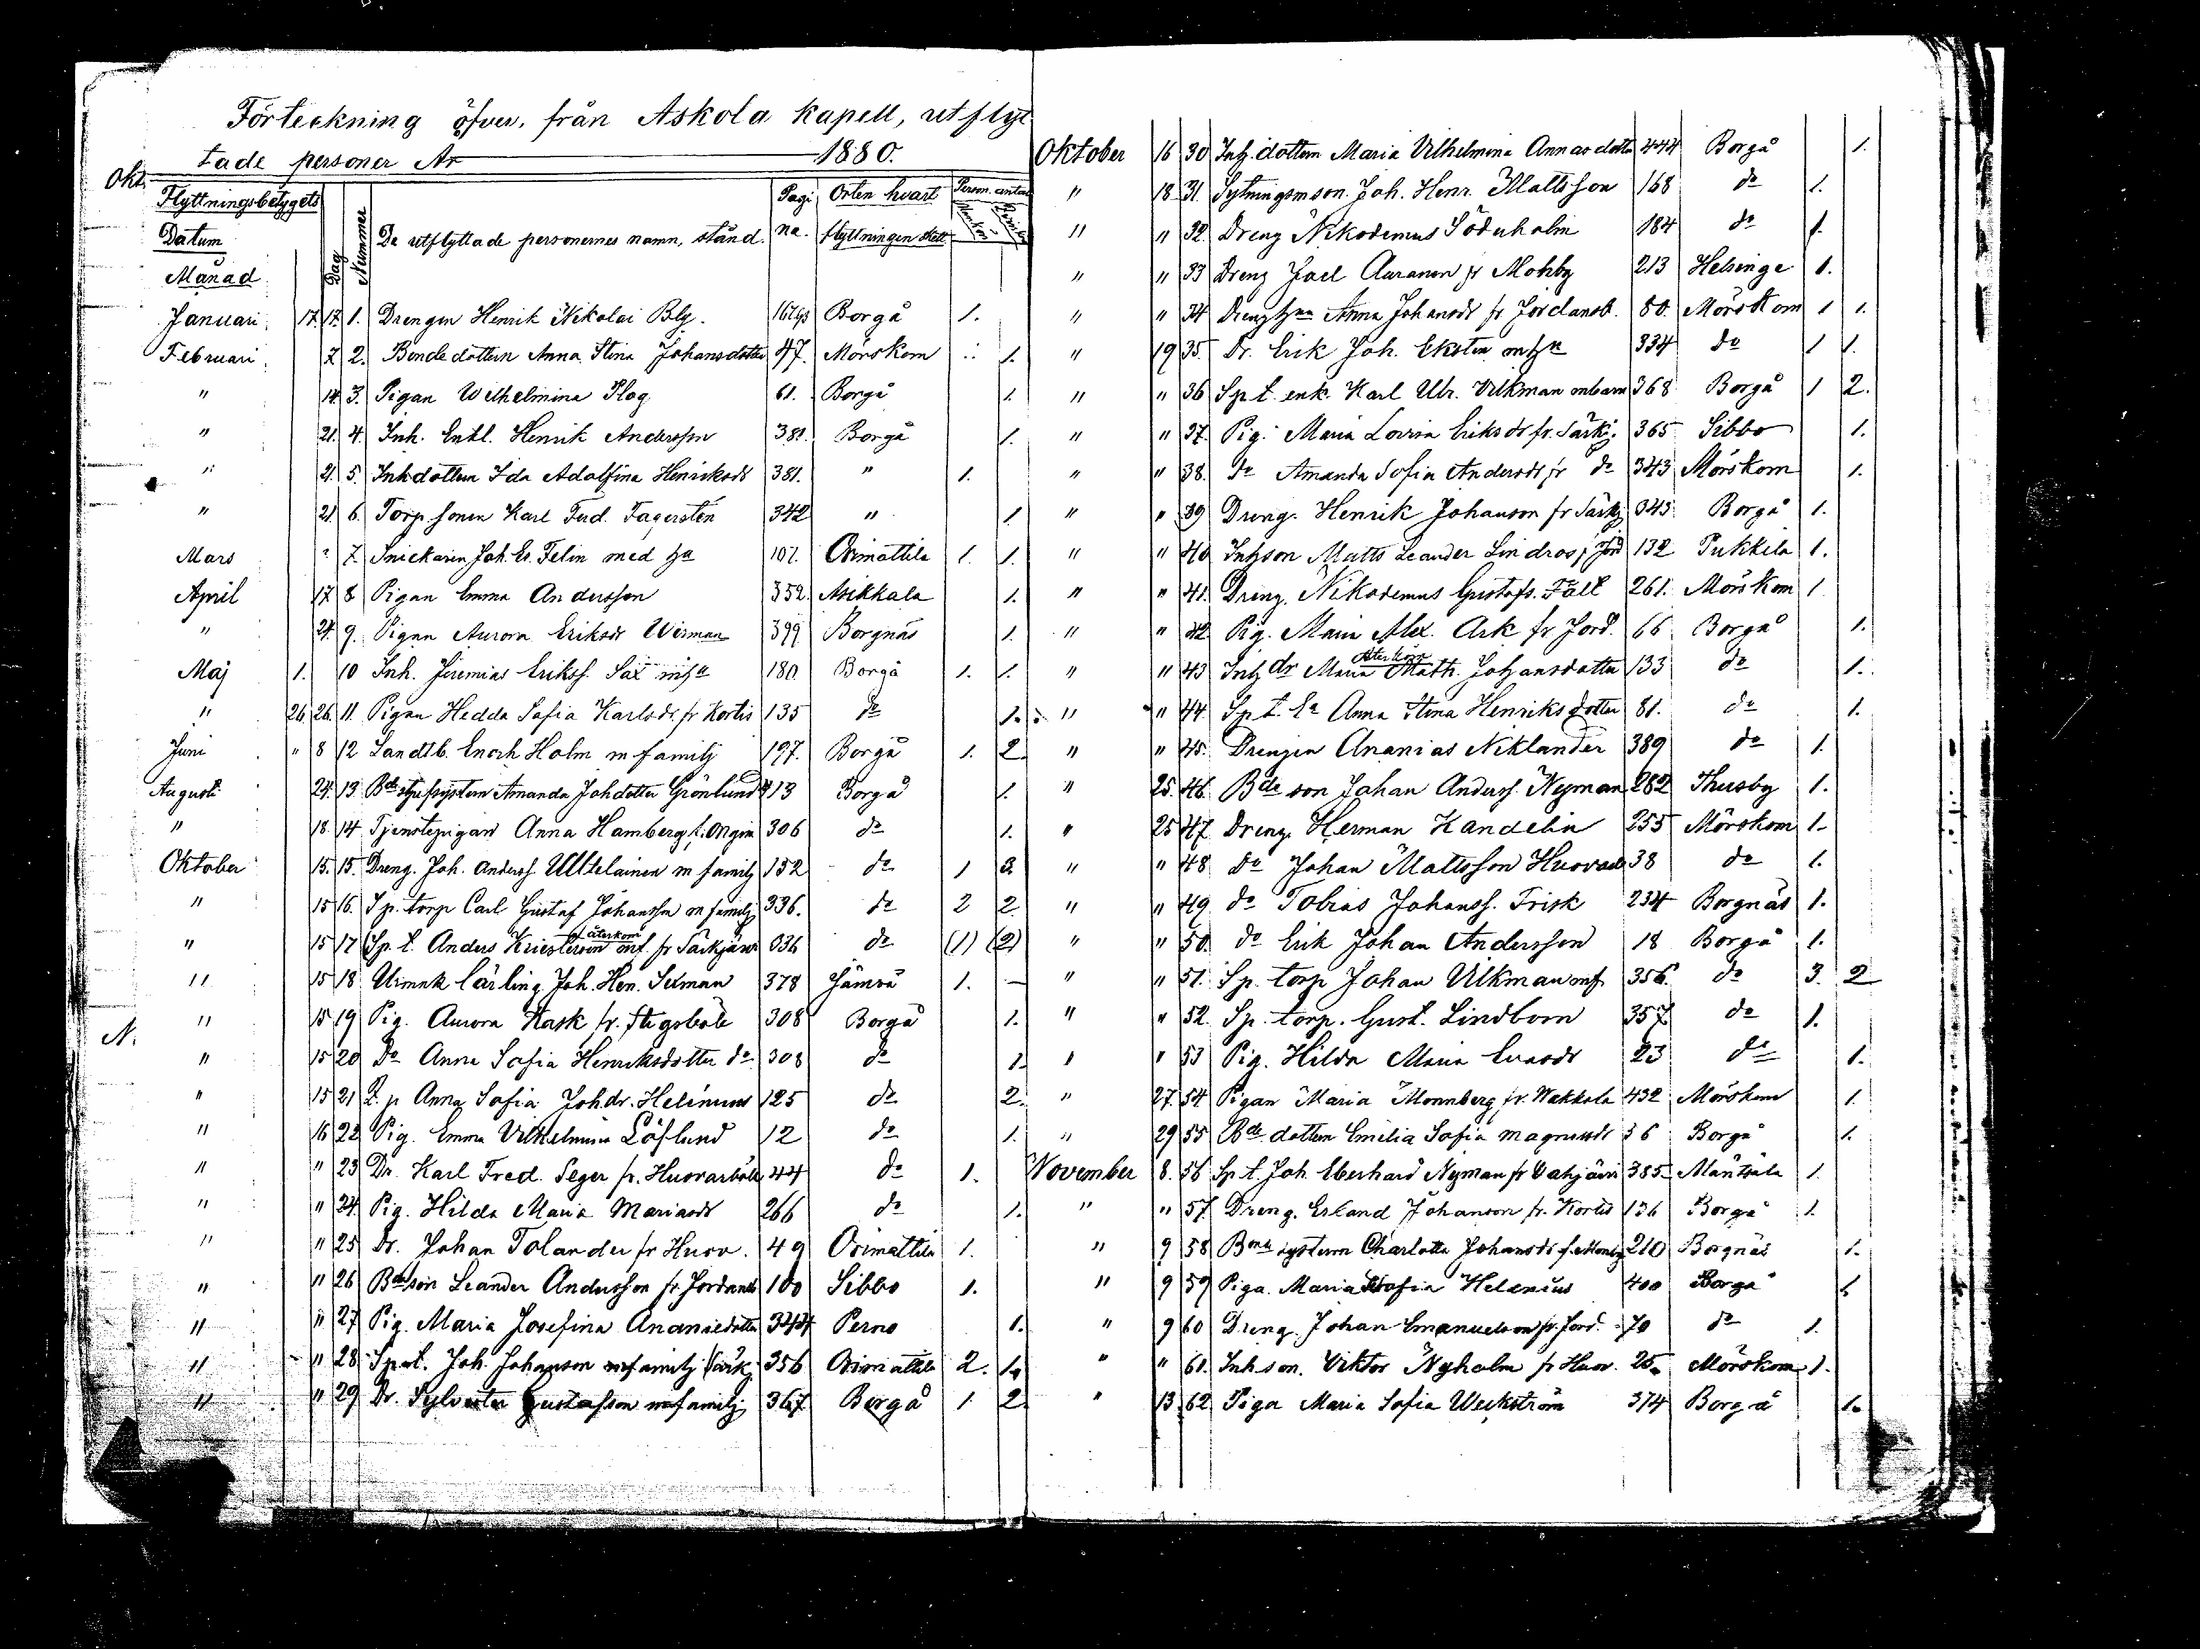 Förteckning öfver, från Askola kapell, utflyt
tade personer År 1880.
Okt.
Flyttningsbetygets
Datum
Månad
Dag
Nummer
De utflyttade personernes namn, stånd.
Pagi
na.
Orten hvart
flyttningen skett
Person. antal
Mankön
Qvinkön
Januari 17 17 1. Drengen Henrik Nikolai Blg. Borgå 1.
Februari 7 2. Bondedottern Anna Stina Johansdotter 47. Mörskom 1.
" 14 3. Pigan Wilhelmina Plog 61. Borgå 1.
" 21. 4. Inh. Enkl. Henrik Andersson 381. Borgå 1.
" 21. 5. Inhdottern Ida Adolfina Henriksdr 381. " 1.
" 21. 6. Torp. sonen Karl Ferd. Fagersten 342 " 1
Mars " 7. Snickaren Joh. Er. Felin med hu 101. Orimattila 1. 1.
April 17 8 Pigan Emma Andersson 352. Asikkala 1.
" 24. 9. Pigan Aurora Eriksdr Wirman 399 Borgnäs 1.
Maj 1. 10 Inh. Jeremias Erikss. Sax mhu 180 Borgå 1. 1.
" 26. 26. 11. Pigan Hedda Sofia Karlsdr. fr Kortis 135 do 1.
Juni " 8 12 Landtb. Enoch Holm m familj 197. Borgå 1. 2
Augusti 24. 13. Amanda Johdotter Grönlund 413 Borgå 1.
" 18. 14. Tjenstepigan Anna Hamberg 306 do 1.
Oktober 15. 15. Dreng. Joh. Anderss. Uttelainen m familj 132 do 1 3.
" 15 16. Sp. torp Carl Gustaf Johansson m familj 336. do 2 2
återkom
" 15 17 (Sp. t. Anders Kristersson mf. fr Särkjärvi 336 do (1) (2)
" 15 18 Lärling Joh. Hen. Selman 378 Jämsä 1. —
N. " 15 19 Pig. Aurora Kask fr. Stegsböle 308 Borgå 1.
" 15 20 Do Anna Sofia Henriksdotter do 308 do 1.
" 15 21 Anna Sofia Johdr. Helenius 125 do 2.
" 16 22 Pig. Emma Vilhelmina Löflund 12 do 1.
" " 23 Dr. Karl Fred. Seger fr. Huvarböle 44 do 1.
" " 24. Pig. Hilda Maria Mariasdr 266 do 1.
" " 25 Dr. Johan Tolander fr Huvv. 49 Orimattila 1.
" " 26 Bdeson Leander Andersson fr Jordansb 100 Sibbo 1.
" " 27 Pig. Maria Josefina Ananiedotter 344 Perno 1.
" " 28 Sp. t. Joh. Johanson mfamilj Särk. 356 Orimattila 2. 1.
" " 29 Dr. Sylvester Gustafsson mfamilj 367 Borgå 1 2
Oktober 16 30 Inh. dottern Maria Vilhelmina Annasdotter 444 Borgå 1.
" 18 31. Sytningsmson Joh. Henr. Mattsson 168 do 1.
" " 32. Dreng Nikodemus Söderholm 184 do 1.
" " 33 Dreng Joel Auranen fr Monby 213 Helsinge 1.
" " 34 Anna Johansdr fr Jordansb. 80. Mörskom 1 1.
" 19 35. Dr. Erik Joh. Eksten mhu 334 do 1 1.
" " 36 Sp t. enk. Karl Ulr. Vilkman mbarn 368 Borgå 1 2.
" " 37. Pig. Maria Lovisa Eriksdr fr. Särkj. 365 Sibbo 1.
" " 38. do Amanda Sofia Andersdr fr do 343 Mörskom 1.
" " 39 Dreng. Henrik Johanson fr Särkj 343 Borgå 1.
" " 40 Inhson Matts Leander Lindros fr Jord 132 Pukkila 1.
" " 41. Dreng. Nikodemus Gustafs. Fält 261. Mörskom 1
" " 42 Pig. Maria Alex. Ark fr Jord. 66 Borgå 1.
återkom
" " 43 Inh dr Maria Math. Johansdotter 133 do 1.
" " 44. Sp t. Ea Anna Stina Henriksdotter 81. do 1.
" " 45. Drengen Ananias Niklander 389 do 1.
" 25. 46. Bde son Johan Anderss. Nyman 282 Thusby 1.
" 25 47. Dreng. Herman Kandelin 255 Mörskom 1.
" " 48 do Johan Mattsson Huvarb 38 do 1.
" " 49 do Tobias Johanss. Frisk 234 Borgnäs 1.
" " 50. do Erik Johan Andersson 18 Borgå 1.
" " 51. Sp. torp Johan Vilkman mf. 356. do 3. 2
" " 52. Sp. torp. Gust. Lindbom 357 do 1.
" " 53 Pig. Hilda Maria Evasdr 23 do 1.
" 27. 54 Pigan Maria Monnberg fr. Wakkola 432 Mörskom 1.
" 29 55 Bde dottern Emilia Sofia Magnusdr 36 Borgå 1.
November 8. 56 Sp t. Joh. Eberhard Nyman fr Vahijärvi 385 Mäntsälä 1.
" " 57. Dreng. Erland Johanson fr. Kortis 136 Borgå 1.
" 9 58 systern Charlotta Johansdr f. Monby 210 Borgnäs 1.
" 9 59 Piga. Maria Sofia Helenius 400 Borgå 1
" 9 60 Dreng. Johan Emanuelson fr. Jord. 70 do 1.
" " 61. Inh son. Viktor Nyholm fr Huvv. 25. Mörskom 1.
" 13 62 Piga Maria Sofia Weckström 374 Borgå 1.